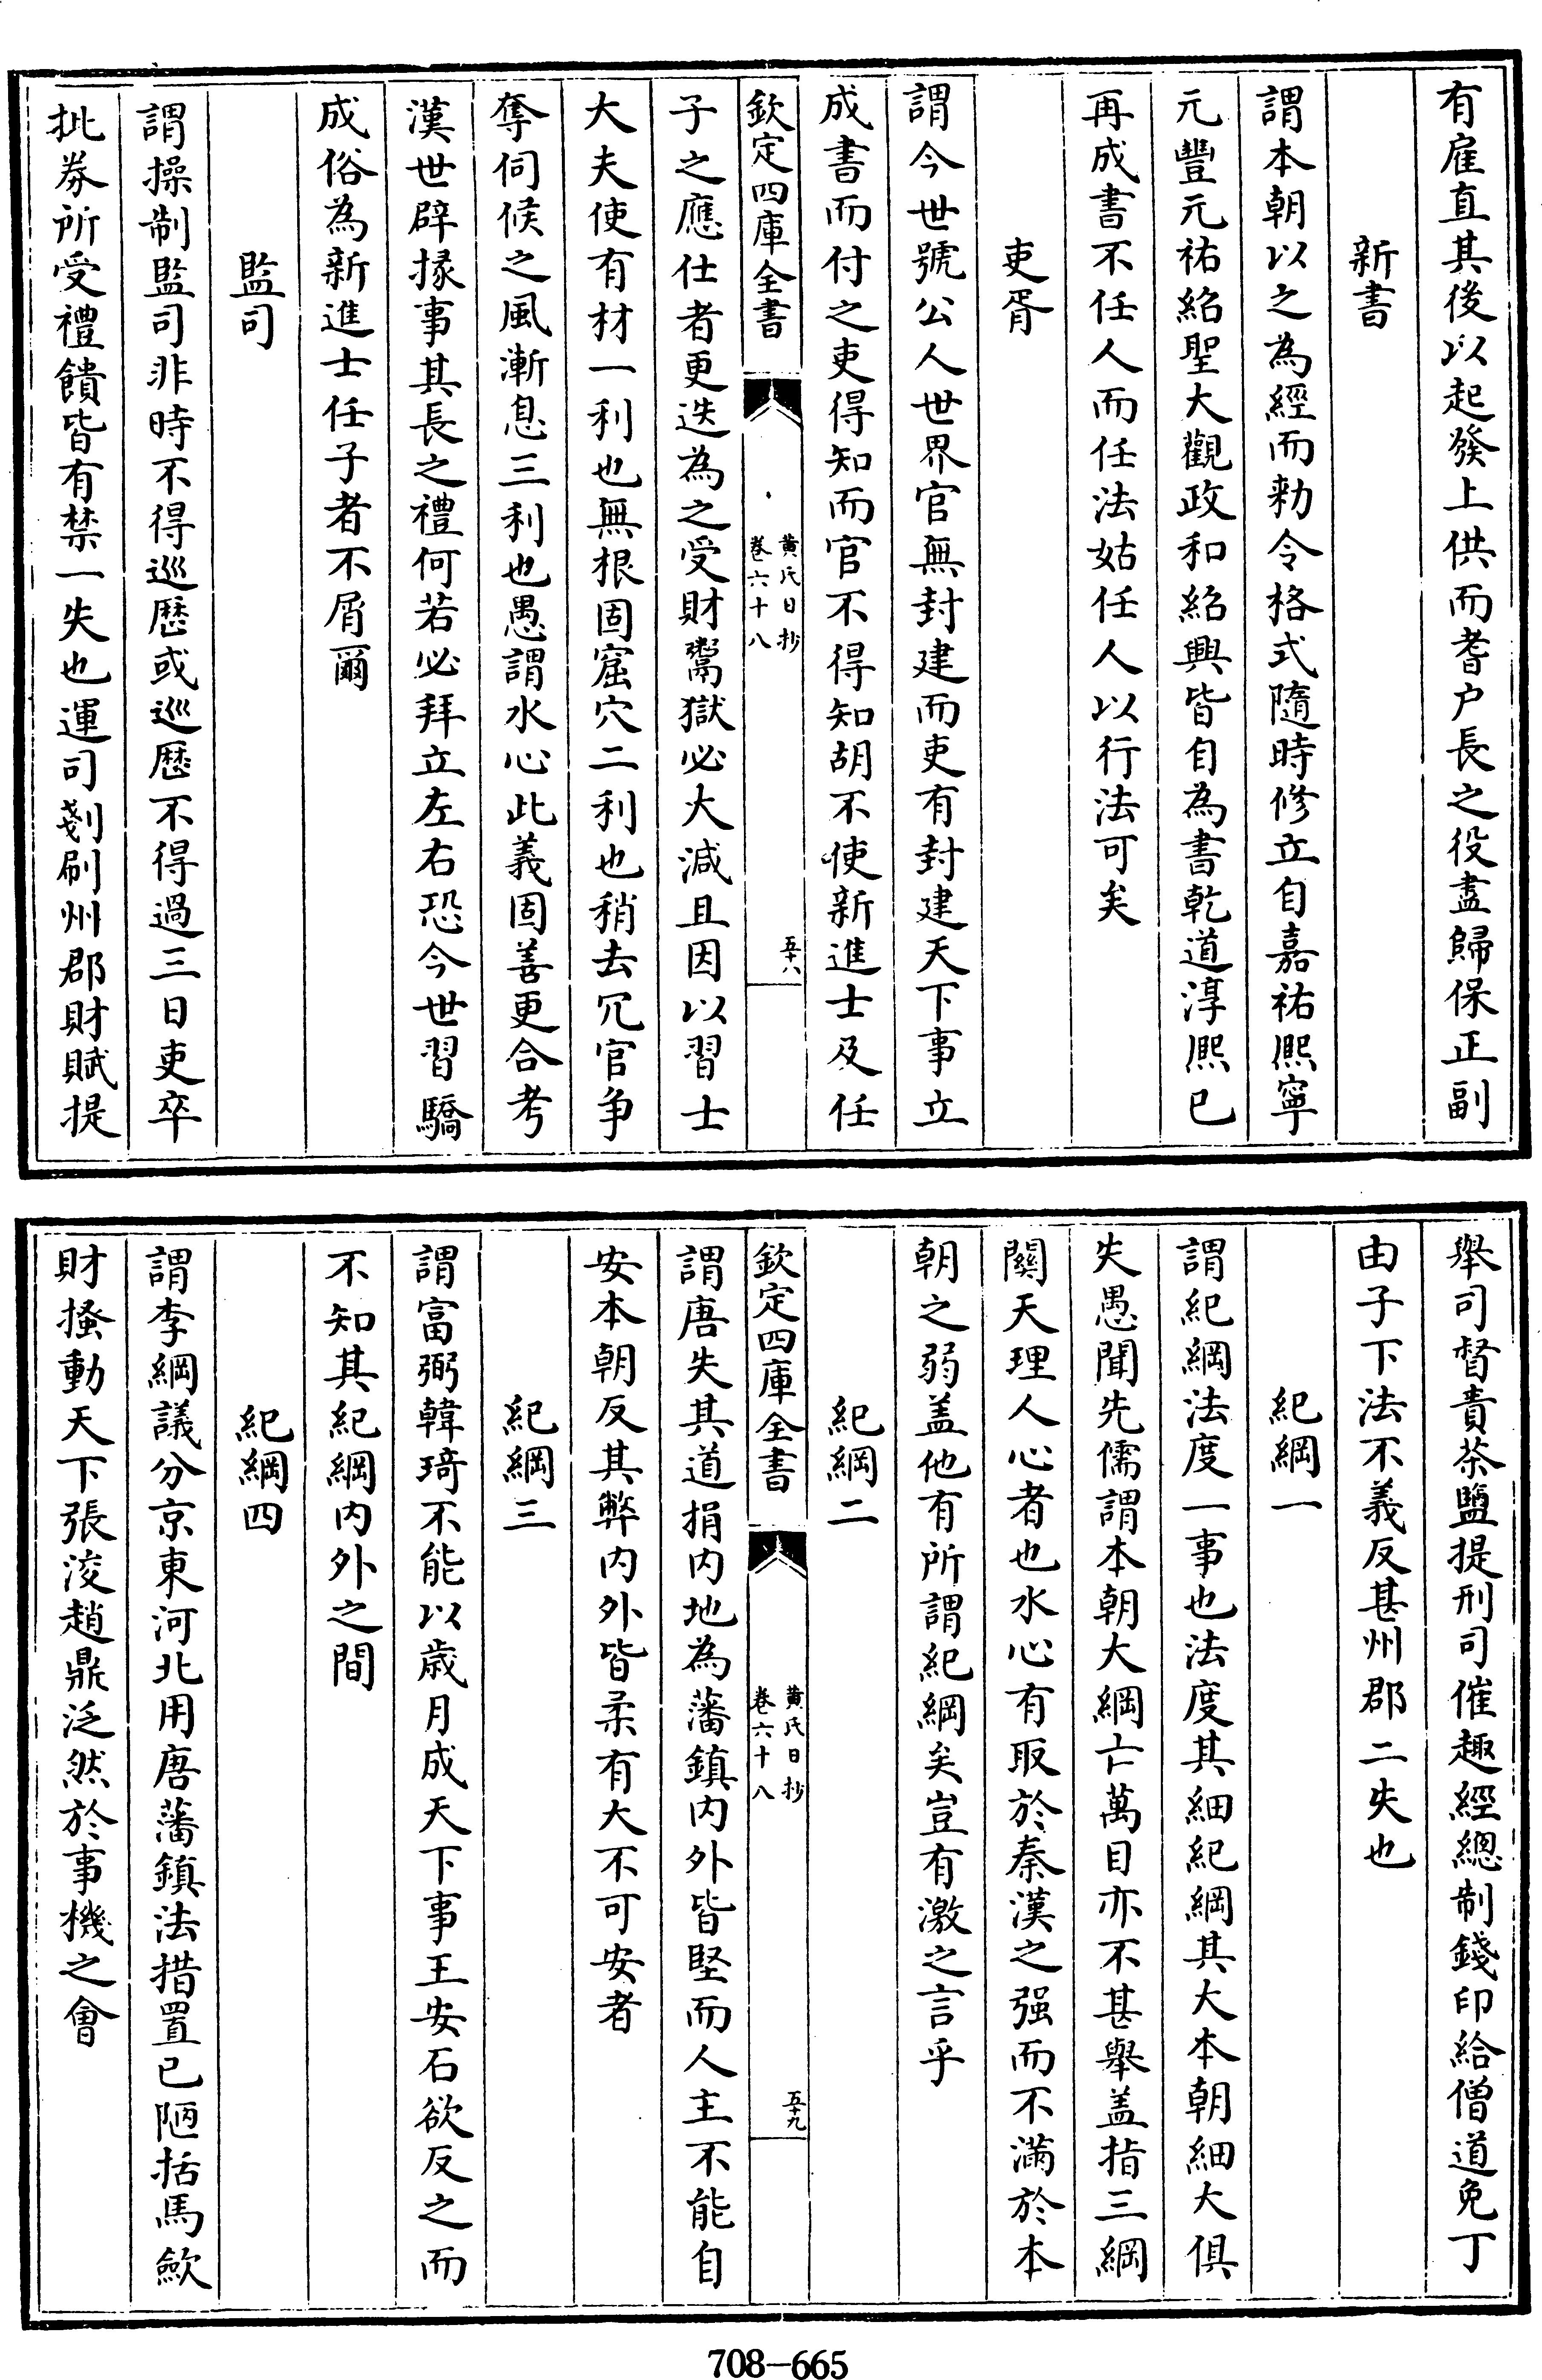 有雇直其後以起發上供而耆户長之役盡歸保正副
新書
謂本朝以之為經而勑令格式隨時修立自嘉祐熈寧
元豐元祐紹聖大觀政和紹興皆自為書乾道淳熈已
再成書不任人而任法姑任人以行法可矣
吏胥
謂今世號公人世界官無封建而吏有封建天下事立
成書而付之吏得知而官不得知胡不使新進士及任
欽定四庫全書
黄氏日抄
卷六十八
五十八
子之應仕者更迭為之受財鬻獄必大減且因以習士
大夫使有材一利也無根固窟穴二利也稍去冗官争
奪伺候之風漸息三利也愚謂水心此義固善更合考
漢世辟掾事其長之禮何若必拜立左右恐今世習驕
成俗為新進士任子者不屑爾
監司
謂操制監司非時不得巡歴或巡歴不得過三日吏卒
批券所受禮饋皆有禁一失也運司剗刷州郡財賦提
舉司督責茶鹽提刑司催趣經總制錢印給僧道免丁
由子下法不義反甚州郡二失也
紀綱一
謂紀綱法度一事也法度其細紀綱其大本朝細大俱
失愚聞先儒謂本朝大綱亡萬目亦不甚舉盖指三綱
闗天理人心者也水心有取於秦漢之强而不滿於本
朝之弱盖他有所謂紀綱矣豈有激之言乎
紀綱二
欽定四庫全書
黄氏日抄
卷六十八
五十九
謂唐失其道捐内地為藩鎮内外皆堅而人主不能自
安本朝反其弊内外皆柔有大不可安者
紀綱三
謂富弼韓琦不能以歲月成天下事王安石欲反之而
不知其紀綱内外之間
紀綱四
謂李綱議分京東河北用唐藩鎮法措置已陋括馬歛
財搔動天下張浚趙鼎泛然於事機之會
708-665